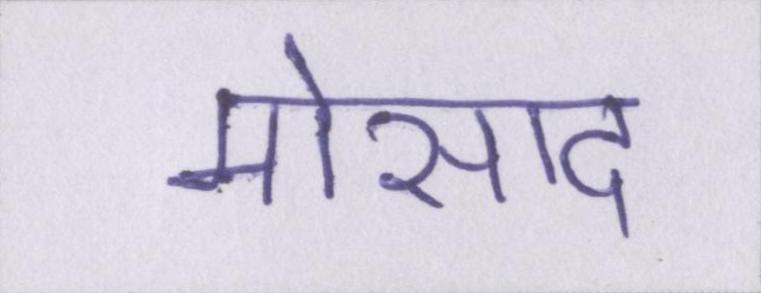 मोसाद